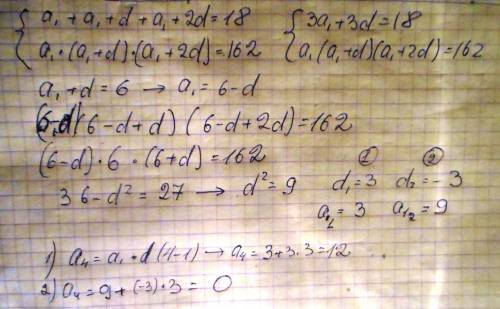 { a₁ + a₁ + d + a₁ + 2d = 18   { 3a₁ + 3d = 18
a₁ · (a₁ + d) · (a₁ + 2d) = 162   a₁ (a₁ + d)(a₁ + 2d) = 162
a₁ + d = 6 → a₁ = 6 - d
(6-d) (6 - d + d) (6 - d + 2d) = 162
(6-d) · 6 · (6+d) = 162   ①   ②
36 - d² = 27 → d² = 9   d₁ = 3   d₂ = -3
a₁₁ = 3   a₁₂ = 9
1) a₄ = a₁ · d (4-1) → a₄ = 3 + 3 · 3 = 12
2) a₄ = 9 + (-3) · 3 = 0